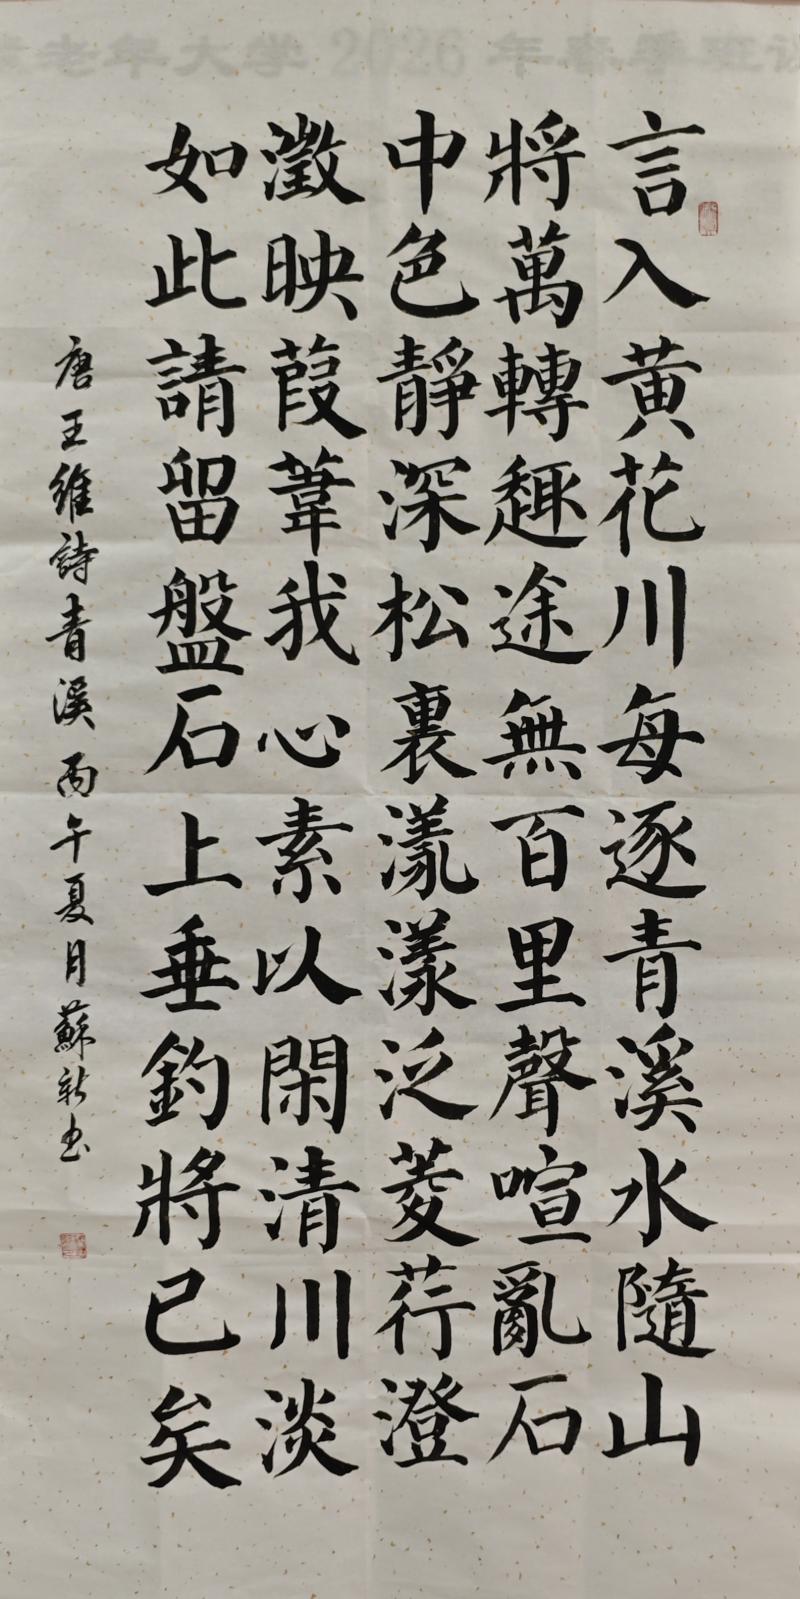 老年大学 2026 年春季班
言入黄花川每逐青溪水隨山
將萬轉趣途無百里聲喧亂石
中色靜深松裏漾漾泛菱荇澄
澂映葭葦我心素以閑清川淡
如此請留盤石上垂釣將已矣
唐王維詩青溪丙午夏月蘇新书